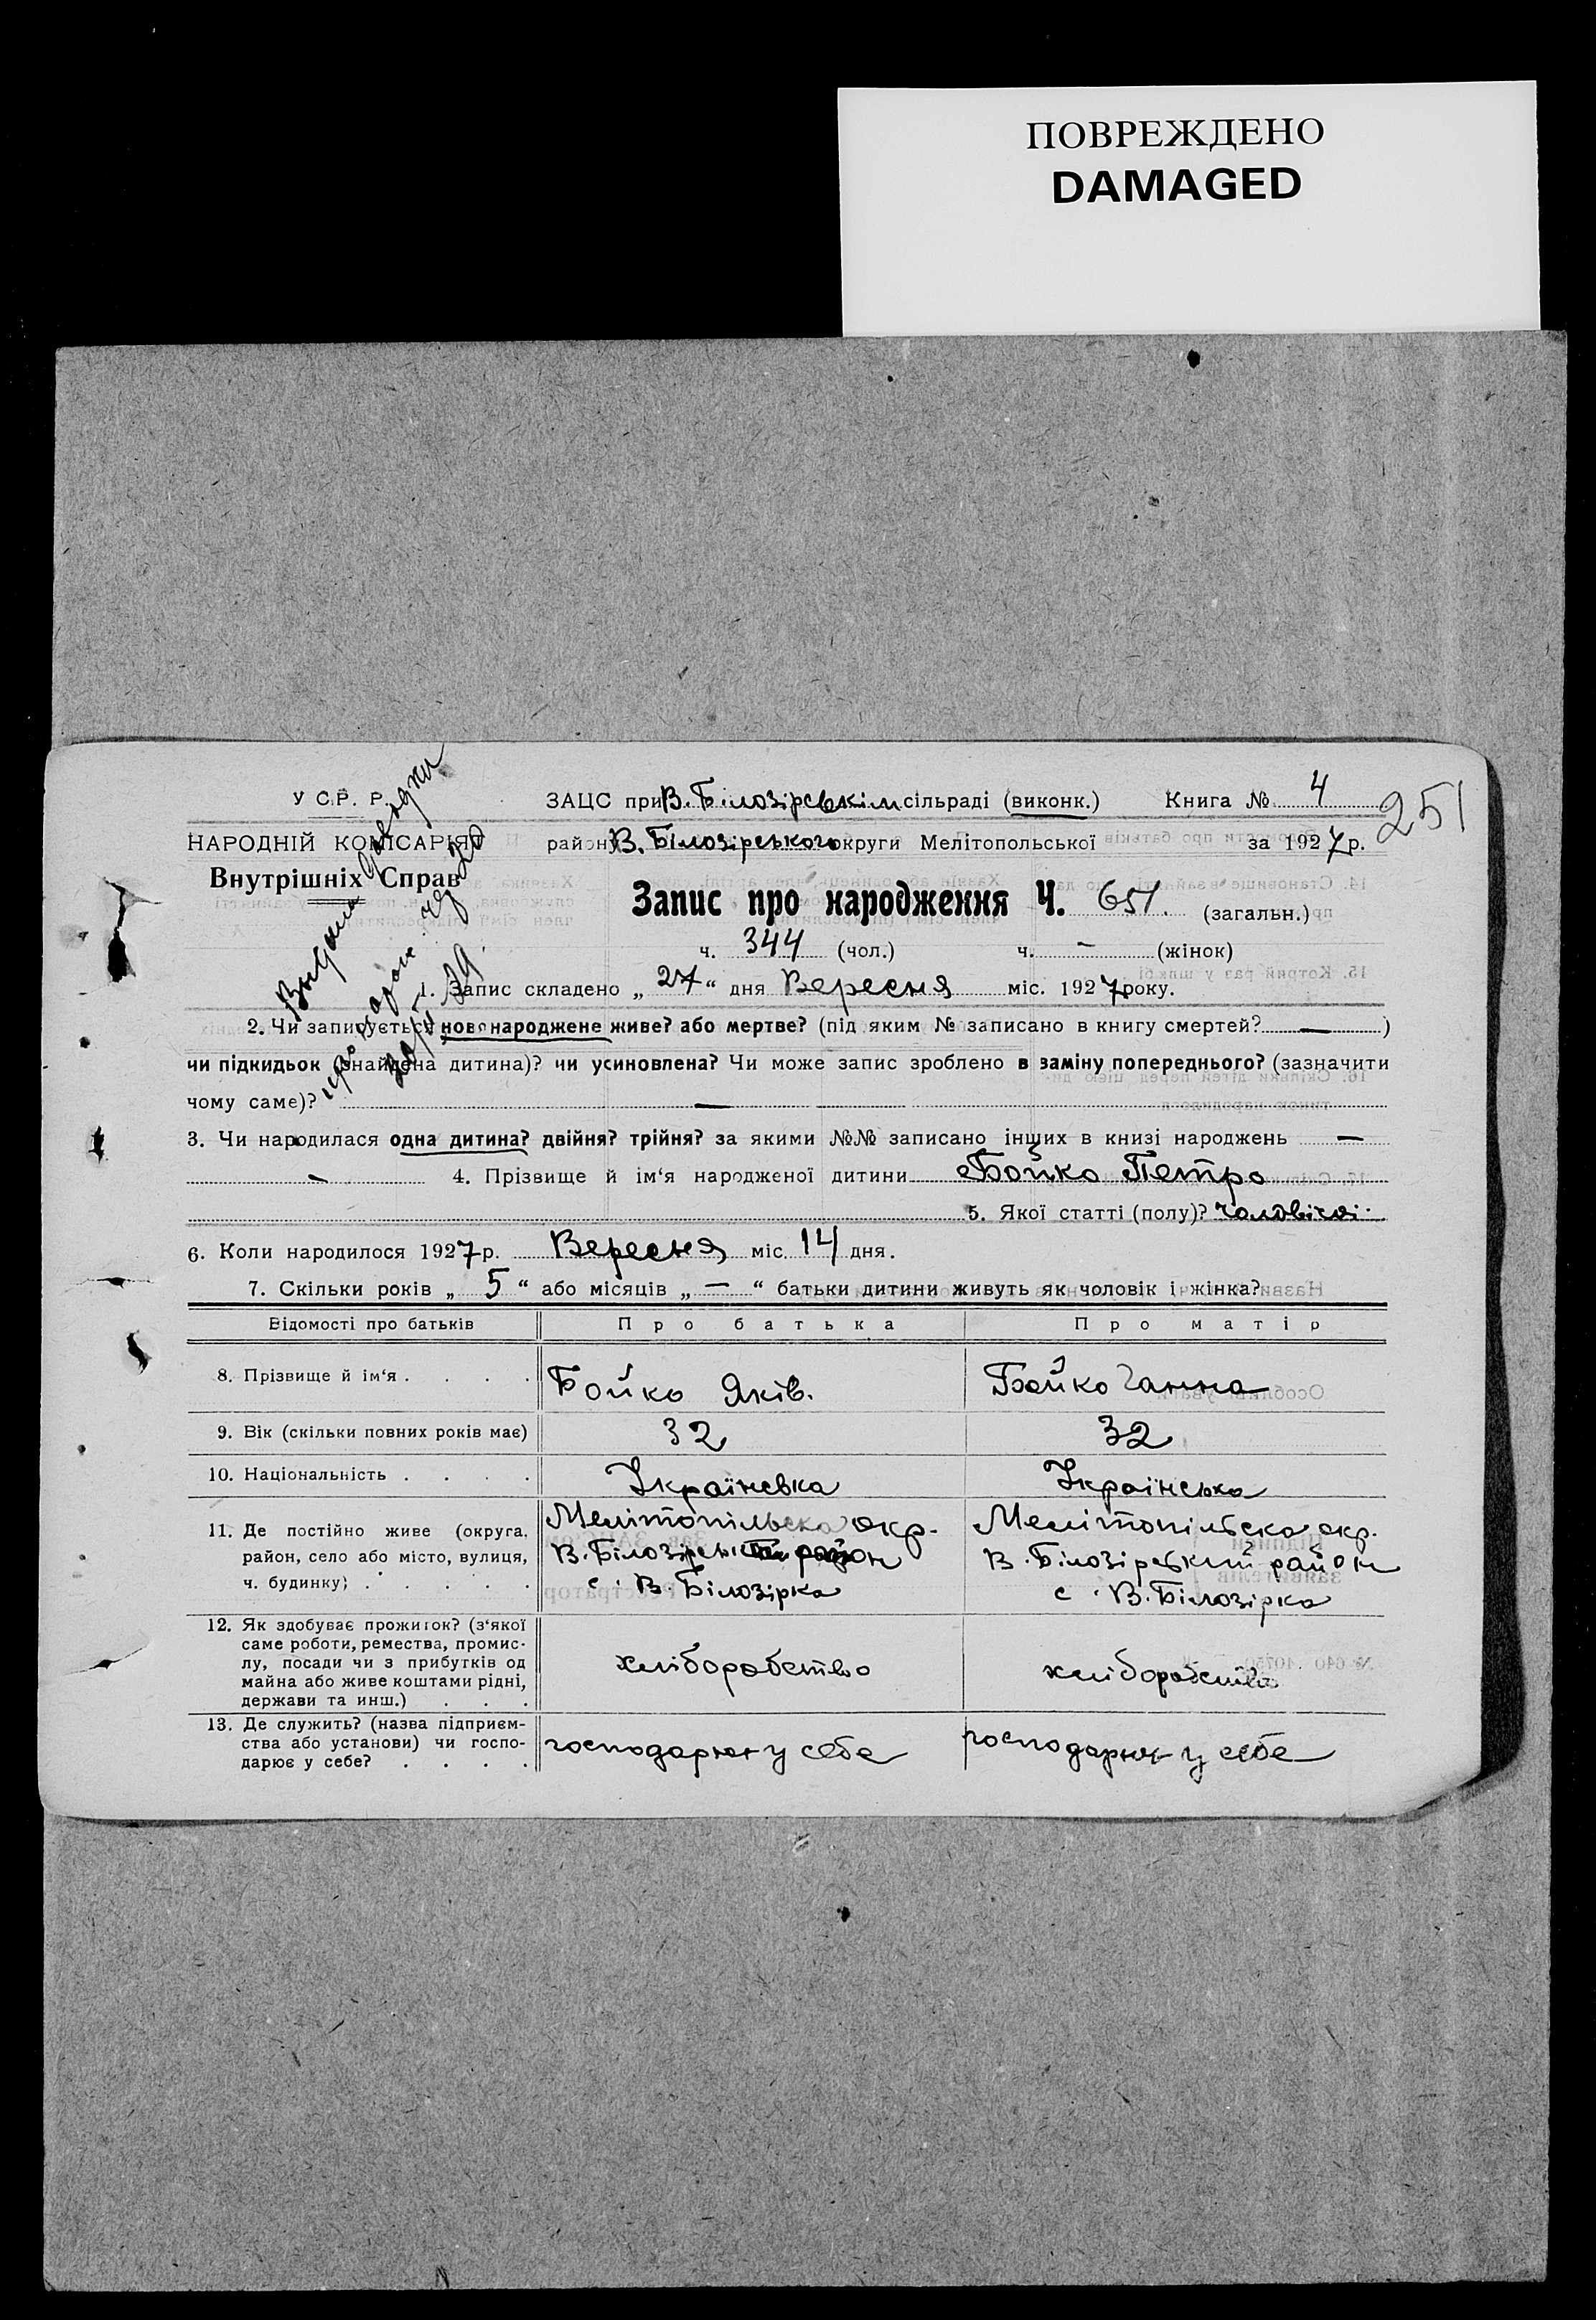 ПОВРЕЖДЕНО
DAMAGED
У С.Р. Р.
НАРОДНІЙ КОМІСАРІЯТ
Внутрішніх Справ
ЗАЦС при В. Білозірськім сільраді (виконк.) Книга № 4
251
району В. Білозірського округи Мелітопольської за 1927 р.
Запис про народження Ч. 651. (загальн.)
ч. 344 (чол.) ч. — (жінок)
1. Запис складено „ 27 “ дня Вересня міс. 1927 року.
2. Чи записується новонароджене живе? або мертве? (під яким № записано в книгу смертей? — )
чи підкидьок (знайдена дитина)? чи усиновлена? Чи може запис зроблено в заміну попереднього? (зазначити
чому саме)? —
3. Чи народилася одна дитина? двійня? трійня? за якими №№ записано інших в книзі народжень —
— 4. Прізвище й ім‘я народженої дитини Бойко Петро
5. Якої статті (полу)? чоловічої
6. Коли народилося 1927 р. Вересня міс. 14 дня.
7. Скільки років „ 5 “ або місяців „ — “ батьки дитини живуть як чоловік і жінка?
Відомості про батьків Про батька Про матір
8. Прізвище й ім‘я . . . . Бойко Яків. Бойко Ганна
9. Вік (скільки повних років має) 32 32
10. Національність . . . . Українська Українська
11. Де постійно живе (округа, Мелітопільска окр. Мелітопільска окр.
район, село або місто, вулиця, В. Білозірський район В. Білозірський район
ч. будинку) . . . . . с. В. Білозірка с. В. Білозірка
12. Як здобуває прожиток? (з‘якої
саме роботи, ремества, промис-
лу, посади чи з прибутків од хліборобство хліборобство
майна або живе коштами рідні,
держави та инш.) . . .
13. Де служить? (назва підприєм-
ства або установи) чи госпо- господарює у себе господарює у себе
дарює у себе? . . . .